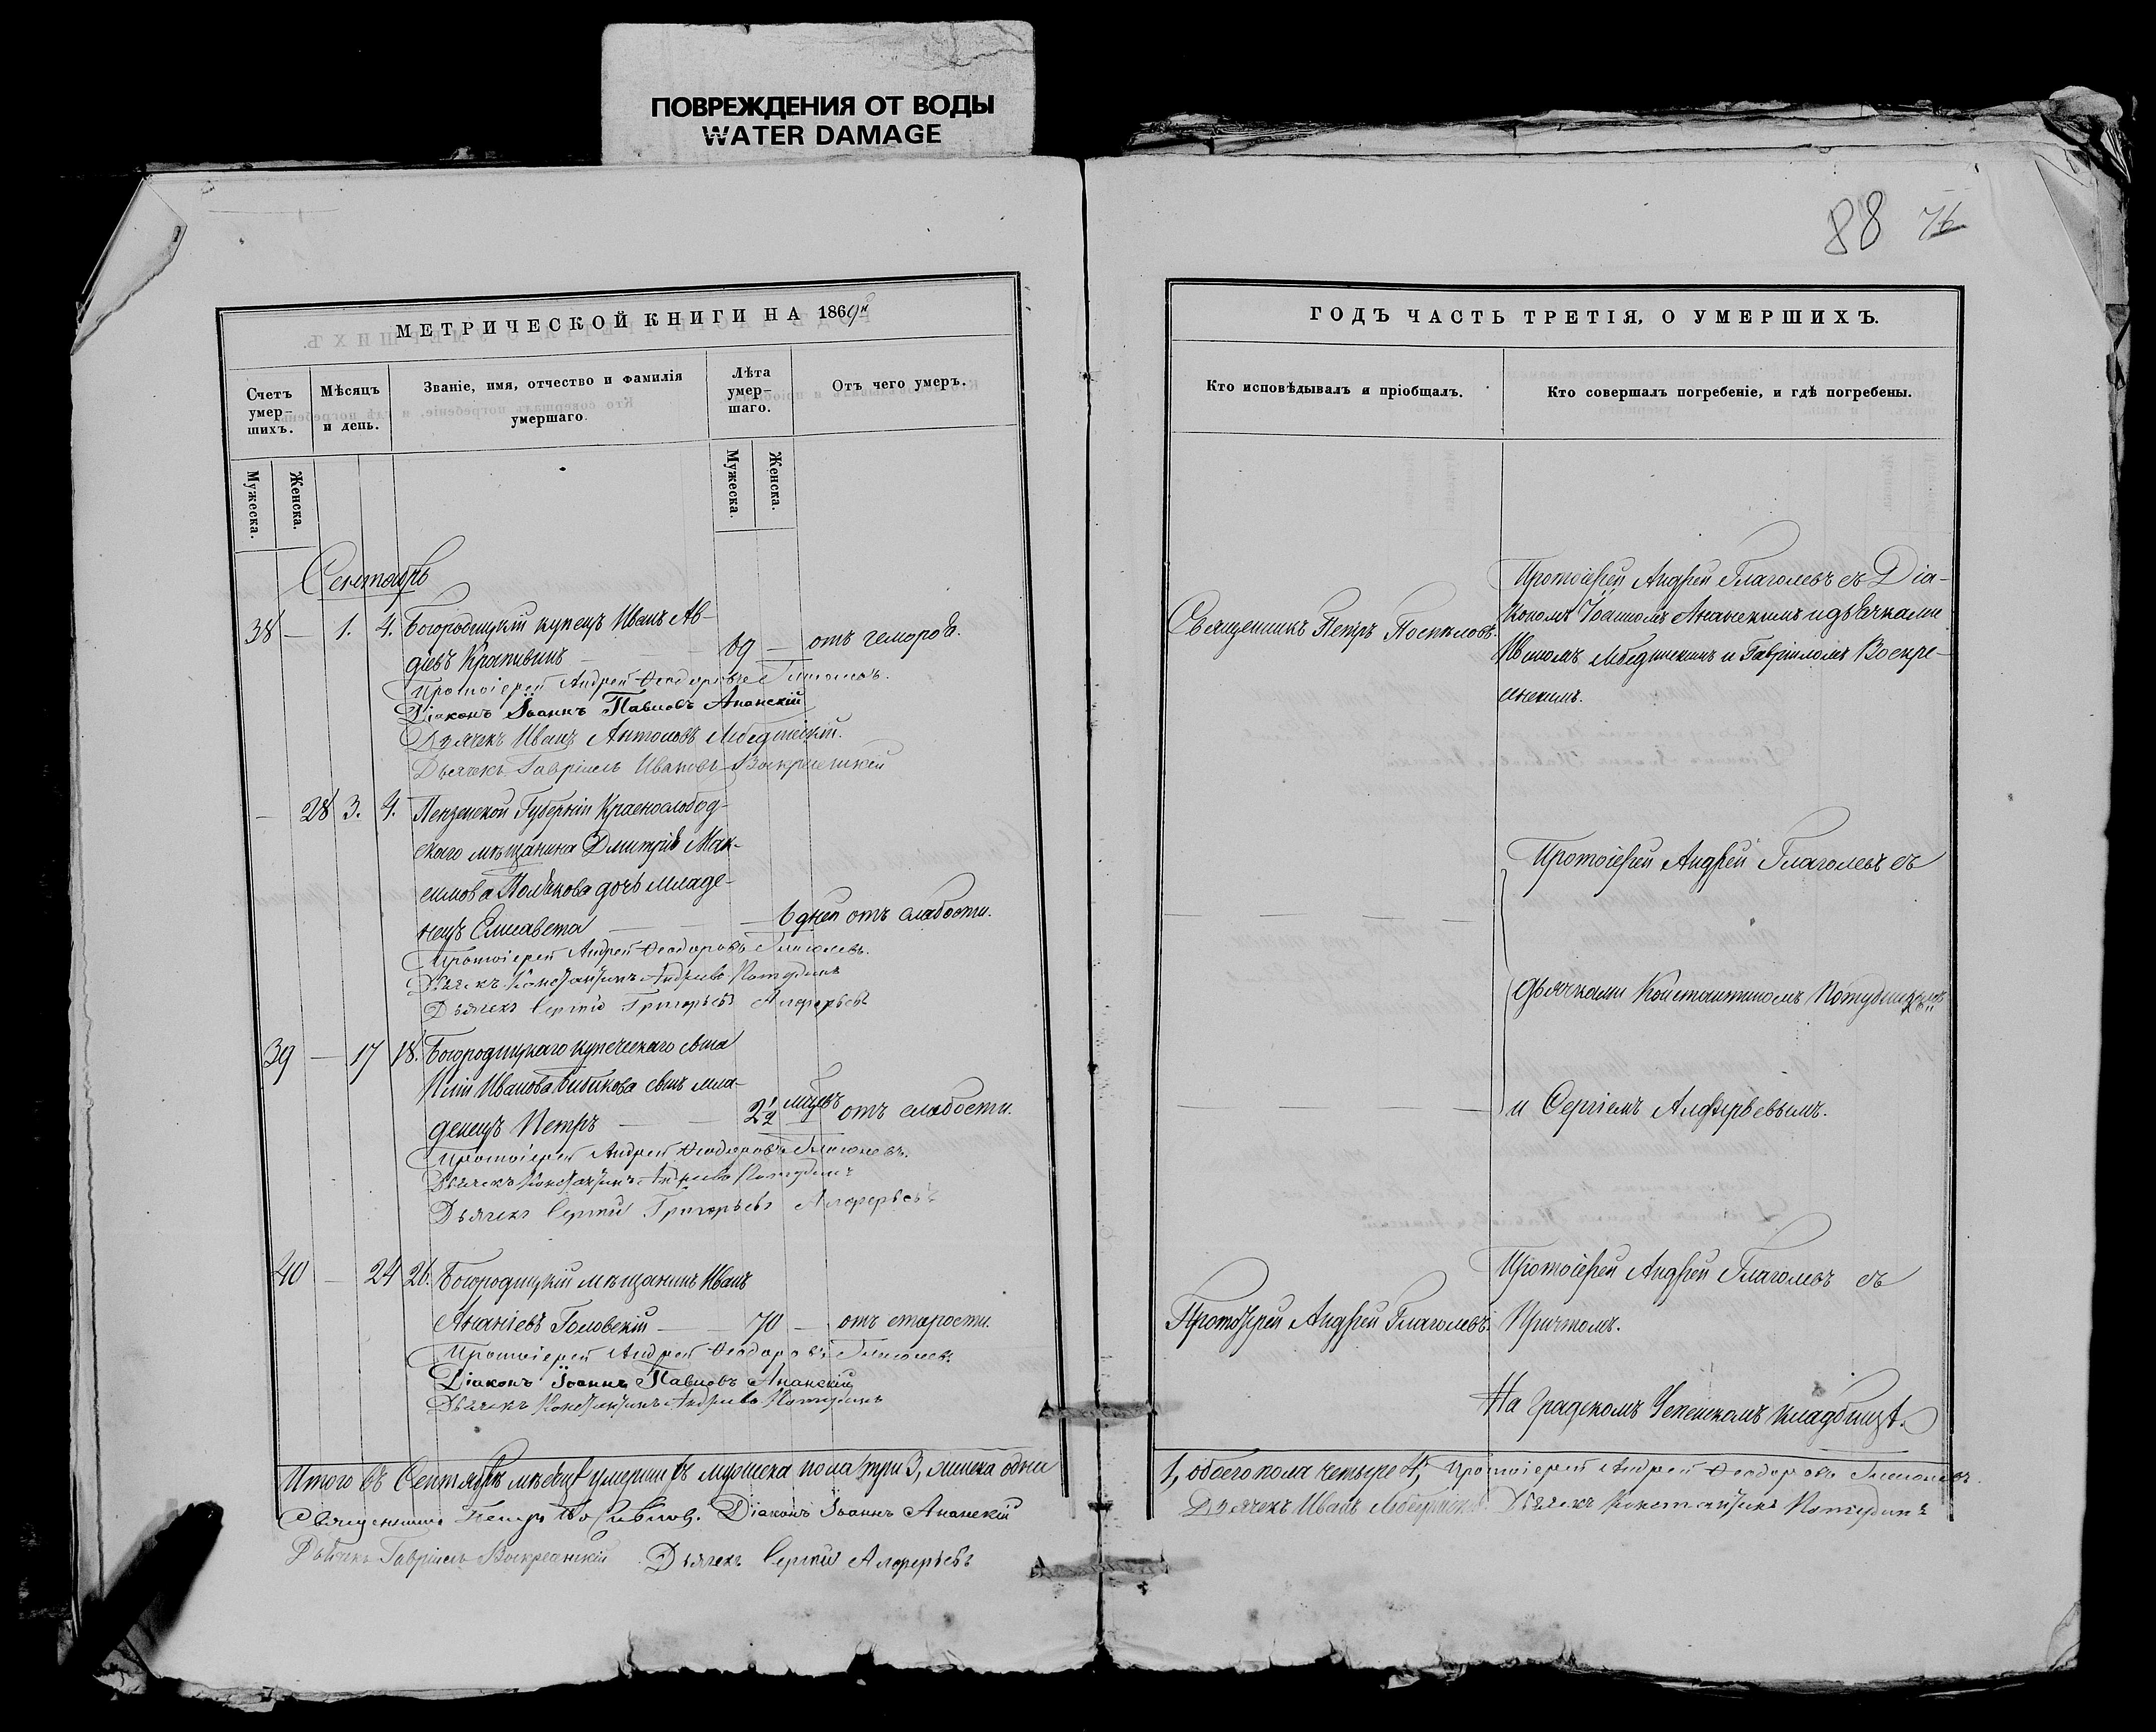 ПОВРЕЖДЕНИЯ ОТ ВОДЫ
WATER DAMAGE
88 76
МЕТРИЧЕСКОЙ КНИГИ НА 1869й
Счетъ умер-шихъ.
Мѣсяцъ и день.
Званіе, имя, отчество и фамилія умершаго.
Лѣта умер-шаго.
Отъ чего умеръ.
Мужеска. Женска.
Мужеска. Женска.
Сентябрь
38 — 1. 4. Богородицкій купецъ Иванъ Ав-
діевъ Крапивинъ — 69 — отъ гемороя.
Протоіерей Андрей Ѳеодоровъ Глаголевъ.
Діаконъ Іоаннъ Павловъ Ананскій
Дьячекъ Иванъ Антоновъ Лебединскій.
Дьячекъ Гавріилъ Ивановъ Воскресенскій
— 28 3. 4. Пензенской Губерніи Краснослобод-
скаго мѣщанина Дмитрія Мак-
симова Полякова дочь младе-
нецъ Елисавета — 6 дней отъ слабости.
Протоіерей Андрей Ѳеодоровъ Глаголевъ.
Дьячекъ Константинъ Андреевъ Потудинъ
Дьячекъ Сергій Григорьевъ Алферьевъ
39 — 17 18. Богородицкаго купеческаго сына
Иліи Иванова Бибикова сынъ мла-
денецъ Петръ — 2½ мѣсяцъ отъ слабости.
Протоіерей Андрей Ѳеодоровъ Глаголевъ.
Дьячекъ Константинъ Андреевъ Потудинъ
Дьячекъ Сергій Григорьевъ Алферьевъ
40 — 24 26. Богородицкій мѣщанинъ Иванъ
Ананіевъ Головскій — 70 — отъ старости.
Протоіерей Андрей Ѳеодоровъ Глаголевъ.
Діаконъ Іоаннъ Павловъ Ананскій
Дьячекъ Константинъ Андреевъ Потудинъ
Итого въ Сентябрѣ мѣсяцѣ умерши хъ мужеска пола три 3, женска одна
Священникъ Петръ Поспѣловъ. Діаконъ Іоаннъ Ананскій
Дьячекъ Гавріилъ Воскресенскій Дьячекъ Сергій Алферьевъ
ГОДЪ ЧАСТЬ ТРЕТІЯ, О УМЕРШИХЪ.
Кто исповѣдывалъ и пріобщалъ.
Кто совершалъ погребеніе, и гдѣ погребены.
Священникъ Петръ Поспѣловъ.
Протоіерей Андрей Глаголевъ съ Діа-
кономъ Іоанномъ Ананскимъ и дьячками
Иваномъ Лебединскимъ и Гавріиломъ Воскре-
сенскимъ.
Протоіерей Андрей Глаголевъ съ
дьячками Константиномъ Потудинымъ
и Сергіемъ Алферьевымъ.
Протоіерей Андрей Глаголевъ.
Протоіерей Андрей Глаголевъ съ
Причтомъ.
На градскомъ кладбищѣ.
1, обоего пола четыре 4, Протоіерей Андрей Ѳеодоровъ Глаголевъ.
Дьячекъ Иванъ Лебединскій. Дьячекъ Константинъ Потудинъ